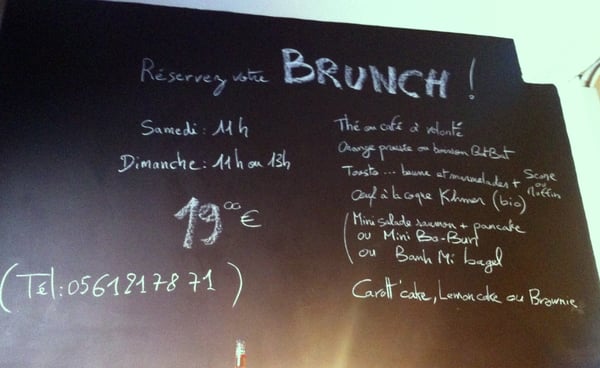 Réservez votre BRUNCH !
Samedi : 11h
Dimanche : 11h ou 13h
19,00 €
(Tél : 0561217871)
Thé ou café à volonté
Orange pressée ou boisson
Toasts ... beurre et marmelades + Scone ou Muffin
Oeuf à la coque Khmer (bio)
Mini salade saumon + pancake
ou Mini Bo-Bun
ou Banh Mi bagel
Carott'cake, Lemoncake ou Brownie